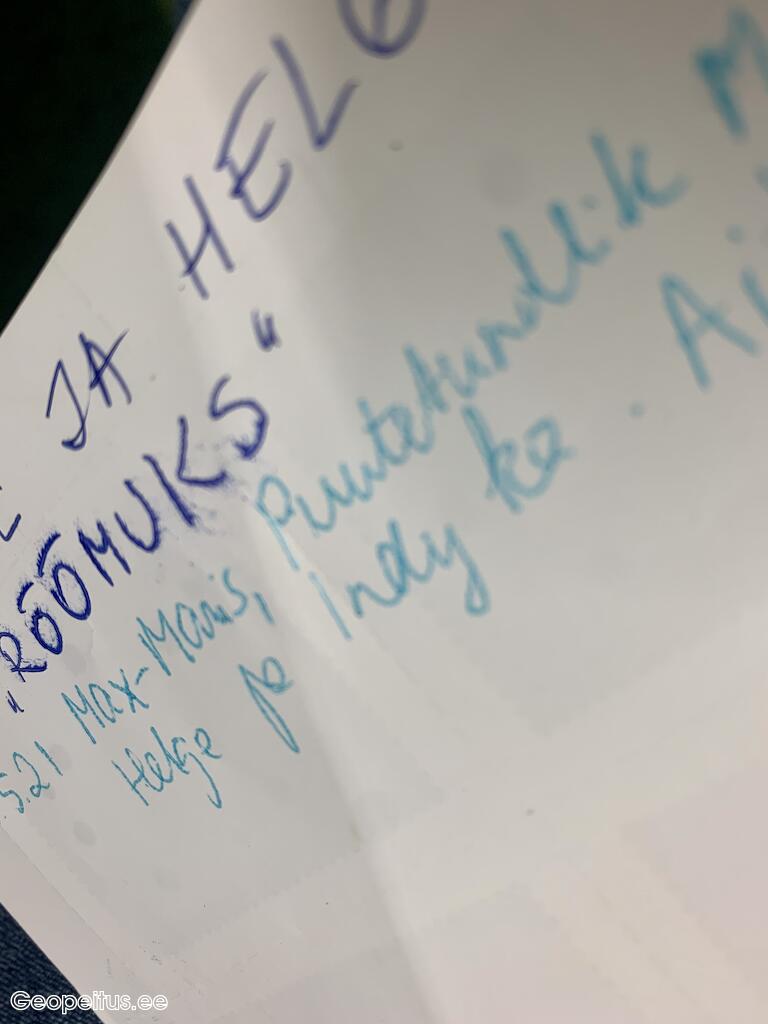 JA HELG
"RÕÕMUKS"
5.21 Max-Maris, Puutetundlik M
Helge ja Indy ka. Ai
Geopeitus.ee